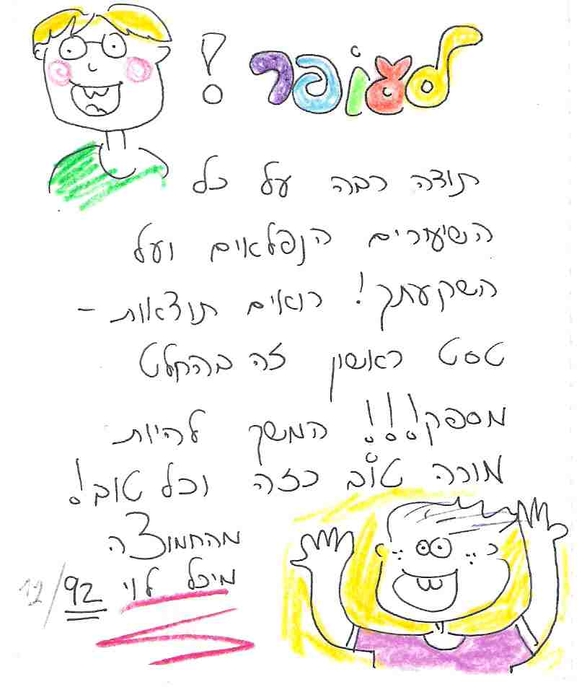 לעופר!
תודה רבה על כל
השיעורים הנפלאים ועל
השקעתך! רואים תוצאות -
טסט ראשון זה בהחלט
מספק!!! המשך להיות
מורה טוב כזה וכל טוב!
מהחמוצה
מיכל לוי 12/92